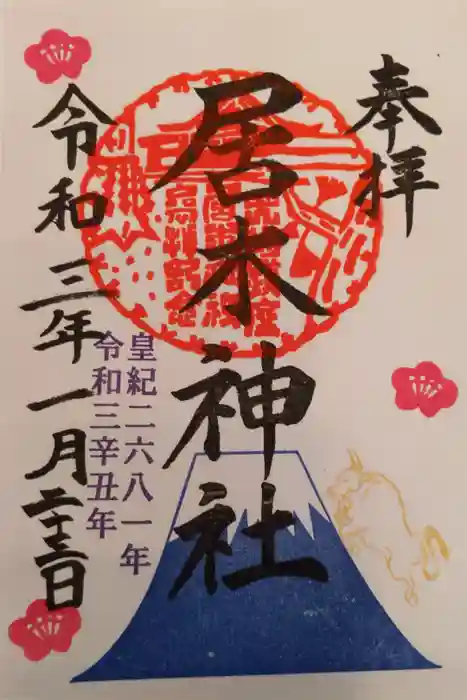 奉拝
居木神社
皇紀二六八一年
令和三辛丑年
令和三年一月二十三日